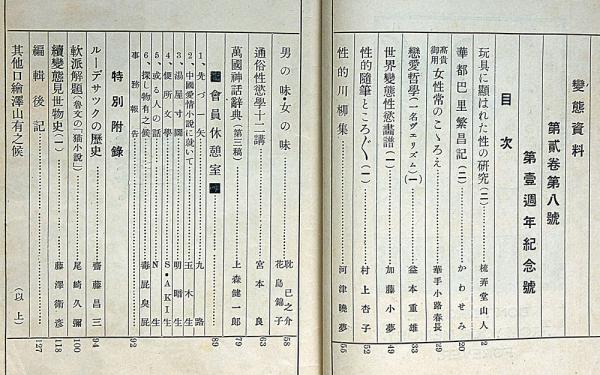 變態資料
第貳卷第八號
第壹週年紀念號
目次
玩具に顯はれた性の研究(二)……梳弄堂山人…2
華都巴里繁昌記(二)……かわせみ…20
高貴御用 女性常のこゝろえ……華手小路春長…29
戀愛哲學(一名ヴェリズム)(一)……益本重雄…33
世界變態性慾畵譜(一)……加藤小夢…49
性的隨筆ところ〴〵(一)……村上杏子…52
性的川柳集……河津曉夢…55
男の味・女の味……耽己之介 花島錦子…58
通俗性慾學十二講……宮本良…63
萬國神話辭典(第三稿)……上森健一郎…79
會員休憩室……89
1、先づ一矢……九路
2、中國愛情小説に就いて……玉木生
3、湯屋寸鐸……明暗生
4、便所文學……S・AKI生
5、或る人の話……N生
6、探し物有之候……毒屁臭屁
事務報告……92
特別附錄
ルーデサックの歷史……齋藤昌三…94
軟派解題(魯文の「猫小説」)……尾崎久彌…100
續變態見世物史(一)……藤澤衛彦…118
編輯後記……127
其他口繪澤山有之候
(以上)